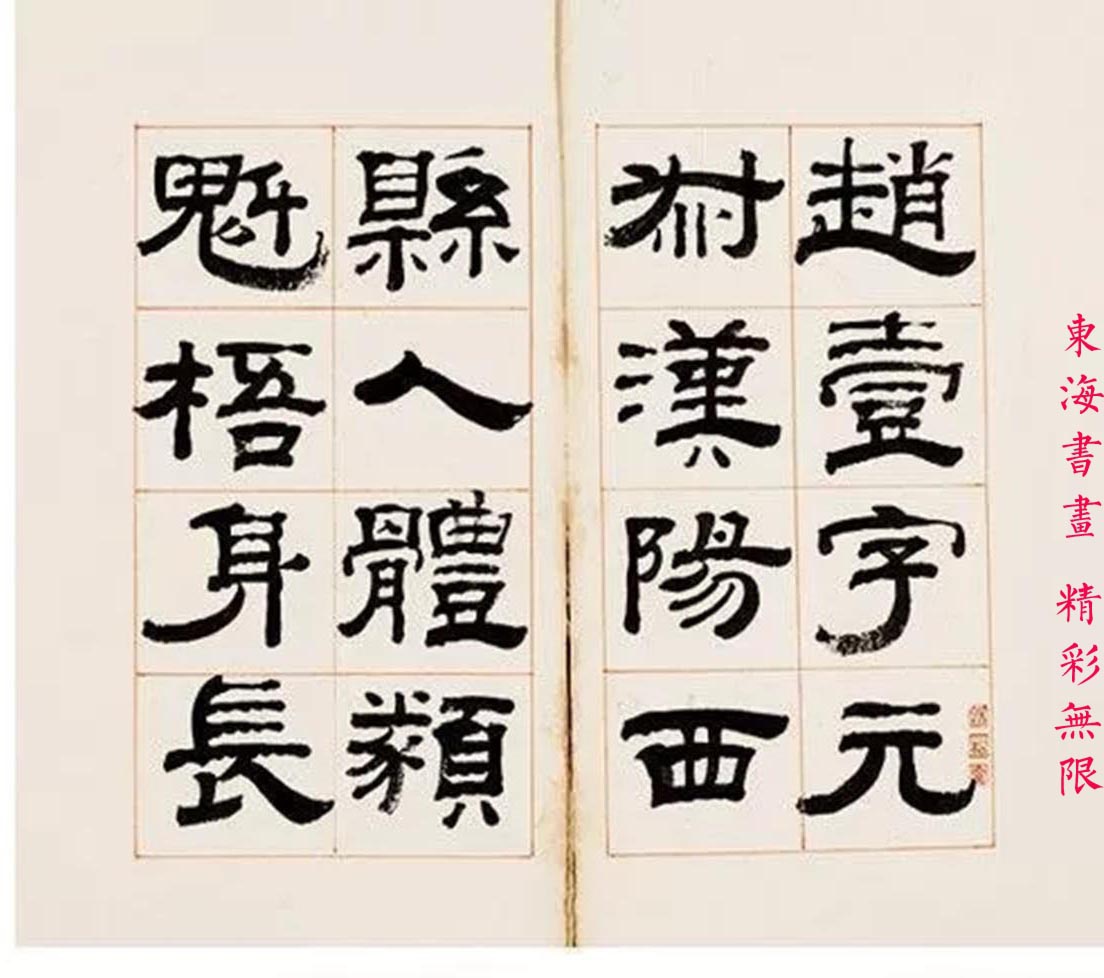 東海書畫 精彩無限
趙壹字元
叔漢陽西
縣人體貌
魁梧身長